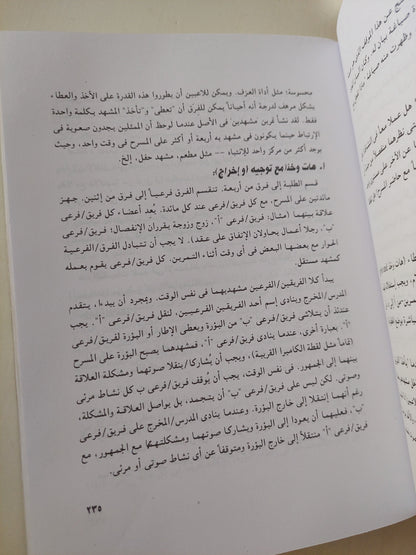 محسوسة: مثل أداة العزف. ويمكن للاعبين أن يطوروا هذه القدرة على الأخذ والعطاء
بشكل مرهف لدرجة أنه أحياناً يمكن للفرق أن "تعطى" و"تأخذ" المشهد بكلمة واحدة
فقط. لقد نشأ قرين مشهدين فى الأصل عندما لوحظ أن الممثلين يجدون صعوبة فى
الإرتباط حينما يكونون فى مشهد به أربعة أو أكثر على المسرح فى وقت واحد، وحيث
يوجد أكثر من مركز واحد للإنتباه -- مثل مطعم، مشهد حفل، إلخ.
أ. هات وخذ مع توجيه (أو إخراج):
قسم الطلبة إلى فرق من أربعة. تنقسم الفرق فرعياً إلى فرق من إثنين. جهز
مائدتين على المسرح مع كل فريق/فرعى عند كل مائدة. يُعد أعضاء كل فريق/فرعى
علاقة بينهما (مثال: فريق/فرعى "أ"، زوج وزوجة يقرران الإنفصال؛ فريق/فرعى
"ب"، رجلا أعمال يحاولان الإتفاق على عقد). لا يجب أن تتبادل الفرق/الفرعية
الحوار مع بعضها البعض فى أى وقت أثناء التمرين. كل فريق/فرعى يقوم بعمله
كمشهد مستقل.
يبدأ كلا الفريقين/الفرعيين مشهديهما فى نفس الوقت. وبمجرد أن يبدء، يتقدم
المدرس/المخرج وينادى إسم أحد الفريقين الفرعيين، لنقل فريق/فرعى "أ". يجب
عندئذ أن يتلاشى فريق/فرعى "ب" من البؤرة ويعطى الإطار أو البؤرة لفريق/فرعى
"أ". بعبارة أخرى، عندما ينادى فريق/فرعى "أ"، فمشهدهما يصبح البؤرة على المسرح
(تماماً مثل لقطة الكاميرا القريبة)، ويجب أن يُشاركا/ينقلا صوتهما ومشكلة العلاقة
بينهما إلى الجمهور. فى نفس الوقت، يجب أن يُوقف فريق/فرعى ب كل نشاط مرئى
وصوتى. لكن ليس على فريق/فرعى "ب" أن يتجمد، بل يواصل العلاقة والمشكلة،
رغم أنهما إنتقلا إلى خارج البؤرة. وعندما ينادى المدرس/المخرج على فريق/فرعى
"ب"، فعليهما أن يعودا إلى البؤرة ويشاركا صوتهما ومشكلتهما مع الجمهور، مع
فريق/فرعى "أ" منتقلاً إلى خارج البؤرة ومتوقفاً عن أى نشاط صوتى أو مرئى.
٢٣٥